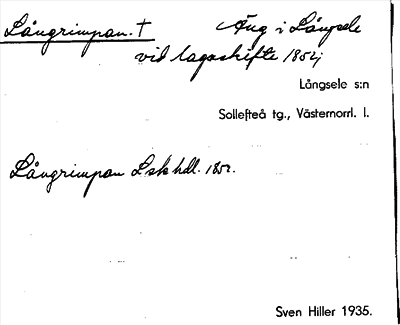 Långrimpan. † Äng i Långsele
vid lagaskifte 1854
Långsele s:n
Sollefteå tg., Västernorrl. l.
Långrimpan Lskhdl. 1852.
Sven Hiller 1935.